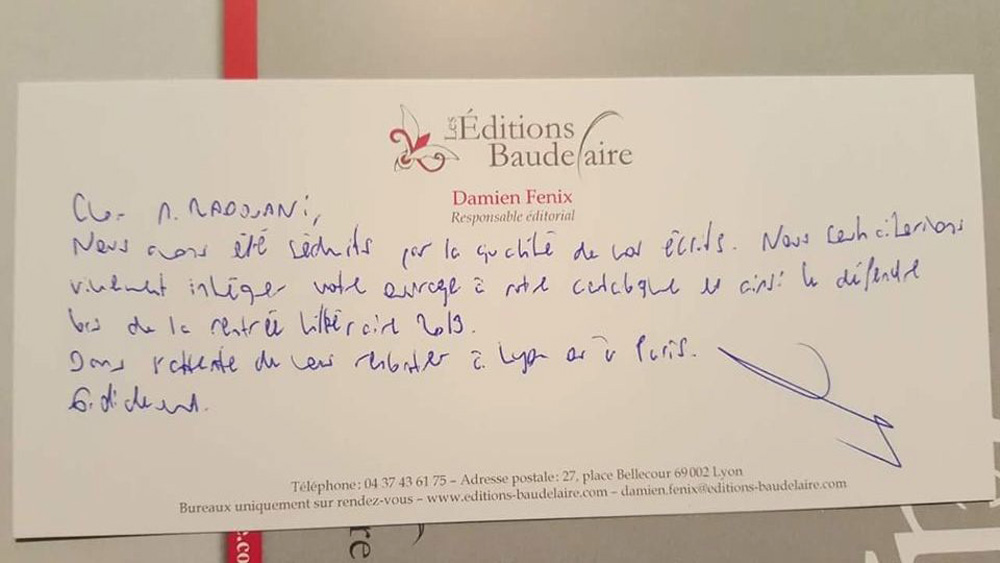 Les Éditions
Baudelaire
Damien Fenix
Responsable éditorial
Cher M. RADOUANI,
Nous avons été séduits par la qualité de vos écrits. Nous souhaiterions
vivement intégrer votre ouvrage à notre catalogue et ainsi le défendre
lors de la rentrée littéraire 2019.
Dans l'attente de vous rencontrer à Lyon ou à Paris.
Cordialement.
Téléphone : 04 37 43 61 75 – Adresse postale : 27, place Bellecour 69 002 Lyon
Bureaux uniquement sur rendez-vous – www.editions-baudelaire.com – damien.fenix@editions-baudelaire.com
.co
re